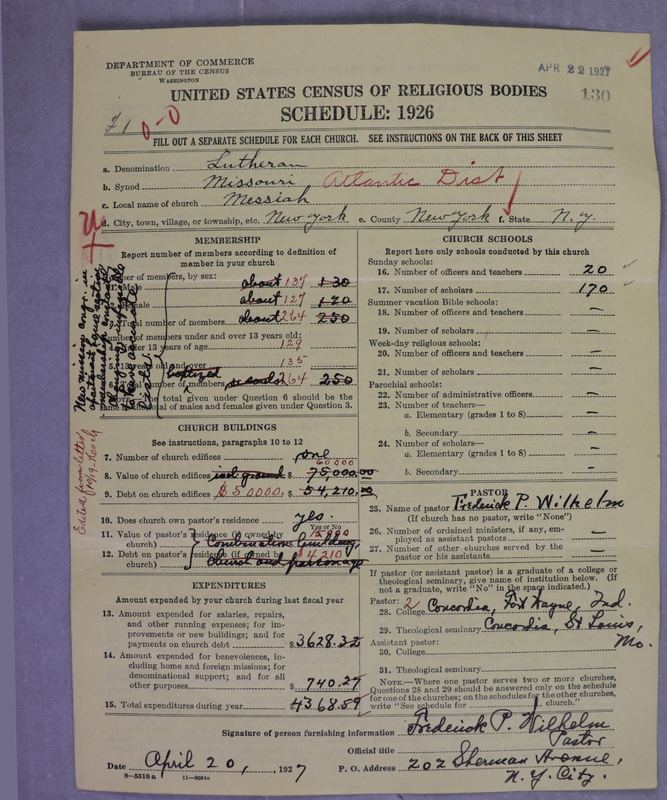 DEPARTMENT OF COMMERCE
BUREAU OF THE CENSUS
WASHINGTON
APR 22 1927
130
UNITED STATES CENSUS OF RELIGIOUS BODIES
SCHEDULE: 1926
FILL OUT A SEPARATE SCHEDULE FOR EACH CHURCH. SEE INSTRUCTIONS ON THE BACK OF THIS SHEET
a. Denomination Lutheran
b. Synod Missouri Atlantic Dist
c. Local name of church Messiah
d. City, town, village, or township, etc. New York e. County New York f. State N.Y.
MEMBERSHIP
Report number of members according to definition of
member in your church
Number of members, by sex:
1. Male about 137 130
2. Female about 127 120
3. Total number of members about 264 250
Number of members under and over 13 years old:
4. Under 13 years of age 129
5. 13 years old and over 135
6. Total number of members baptized 264 250
NOTE.—The total given under Question 6 should be the
same as the total of males and females given under Question 3.
CHURCH BUILDINGS
See instructions, paragraphs 10 to 12
7. Number of church edifices one
60000
8. Value of church edifices incl. ground $ 75,000.00
9. Debt on church edifices $50000. $ 54,210.00
10. Does church own pastor's residence yes.
Yes or No
11. Value of pastor's residence (if owned by
church) Combination building,
12. Debt on pastor's residence (if owned by $4210
church) church and parsonage
EXPENDITURES
Amount expended by your church during last fiscal year
13. Amount expended for salaries, repairs,
and other running expenses; for im-
provements or new buildings; and for
payments on church debt $3628.32
14. Amount expended for benevolences,
including home and foreign missions; for
denominational support; and for all
other purposes $ 740.27
15. Total expenditures during year 4368.59
CHURCH SCHOOLS
Report here only schools conducted by this church
Sunday schools:
16. Number of officers and teachers 20
17. Number of scholars 170
Summer vacation Bible schools:
18. Number of officers and teachers —
19. Number of scholars —
Week-day religious schools:
20. Number of officers and teachers —
21. Number of scholars —
Parochial schools:
22. Number of administrative officers —
23. Number of teachers—
a. Elementary (grades 1 to 8) —
b. Secondary —
24. Number of scholars—
a. Elementary (grades 1 to 8) —
b. Secondary —
PASTOR
25. Name of pastor Frederick P. Wilhelm
(If church has no pastor, write "None")
26. Number of ordained ministers, if any, em-
ployed as assistant pastors —
27. Number of other churches served by the
pastor or his assistants —
If pastor (or assistant pastor) is a graduate of a college or
theological seminary, give name of institution below. (If
not a graduate, write "No" in the space indicated.)
Pastor: 2
28. College Concordia, Fort Wayne, Ind.
29. Theological seminary Concordia, St Louis, Mo.
Assistant pastor:
30. College
31. Theological seminary
NOTE.—Where one pastor serves two or more churches,
Questions 28 and 29 should be answered only on the schedule
for one of the churches; on the schedules for the other churches,
write "See schedule for church."
Signature of person furnishing information Frederick P. Wilhelm
Official title Pastor
Date April 20, 1927 P. O. Address 202 Sherman Avenue,
N.Y. City.